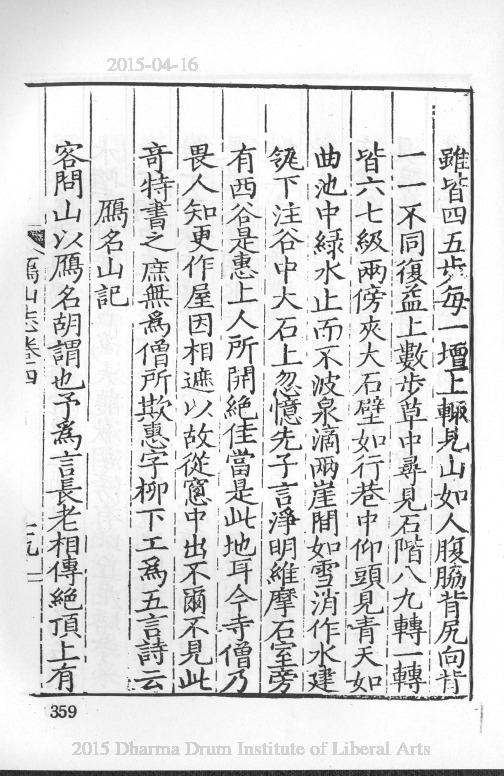 2015-04-16
雖皆四五步每一壇上輙見山如人腹脇背尻向背
一一不同復益上數步草中尋見石階八九轉一轉
皆六七級兩傍夾大石壁如行巷中仰頭見青天如
曲池中綠水止而不波泉滴兩崖間如雪消作水建
瓴下注谷中大石上忽憶先子言淨明維摩石室旁
有西谷是惠上人所開絕佳當是此地耳今寺僧乃
畏人知更作屋因相遮以故從窻中出不爾不見此
奇特書之庶無爲僧所欺惠字柳下工爲五言詩云
鴈名山記
客問山以鴈名胡謂也予爲言長老相傳絕頂上有
鴈山志卷四
359
2015 Dharma Drum Institute of Liberal Arts